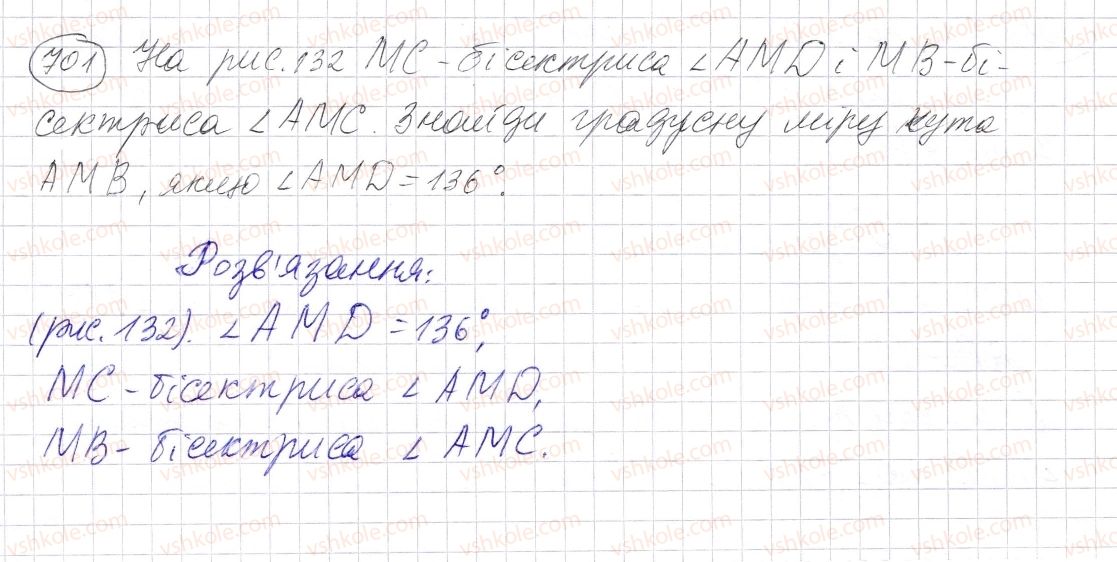 701 На рис. 132 MC - бісектриса ∠AMD і MB - бі-
сектриса ∠AMC. Знайди градусну міру кута
AMB, якщо ∠AMD = 136°.
Розв'язання:
(рис. 132). ∠AMD = 136°,
MC - бісектриса ∠AMD,
MB - бісектриса ∠AMC.